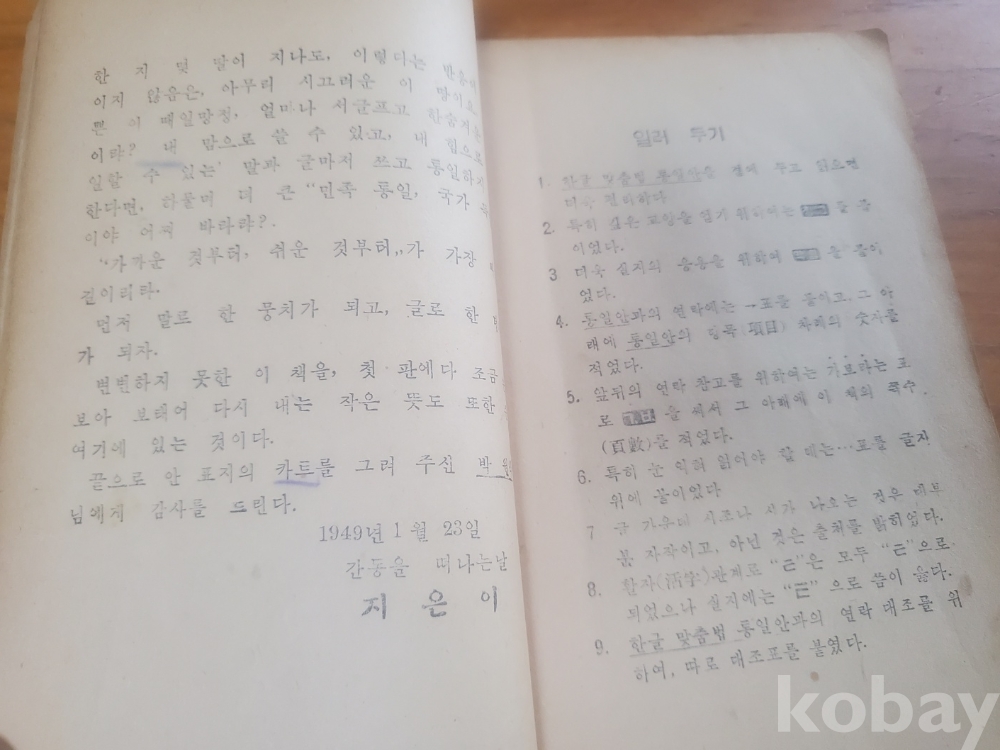 한 지 몇 달이 지나도, 이렇다는 반응이
이지 않음은, 아무리 시끄러운 이 땅이요
뿐 이 매일망정, 얼마나 서글프고 한숨지을
이랴? 내 맘으로 쓸 수 있고, 내 힘으로
일할 수 있는 말과 글마저 쓰고 통일하지
한다면, 하물며 더 큰 "민족 통일, 국가
이야 어찌 바라랴?
"가까운 것부터, 쉬운 것부터„가 가장
길이리라.
먼저 말로 한 뭉치가 되고, 글로 한
가 되자.
변변하지 못한 이 책을, 첫 판에다 조금
보아 보태어 다시 내는 작은 뜻도 또한
여기에 있는 것이다.
끝으로 안 표지의 카트를 그려 주신 박
님에게 감사를 드린다.
1949년 1월 23일
간동을 떠나는날
지은이
일러 두기
1. 한글 맞춤법 통일안을 곁에 두고 읽으면
더욱 편리하다
2. 특히 깊은 교양을 얻기 위하여는 를 붙
이었다.
3 더욱 실지의 응용을 위하여 을 붙이
었다.
4. 통일안과의 연락에는 →표를 붙이고, 그 아
래에 통일안의 항목(項目) 차례의 숫자를
적었다.
5. 앞뒤의 연락 참고를 위하여는 기호라는 표
로 ㄱ.ㅂ. 을 써서 그 아래에 이 책의 쪽수
(頁數)를 적었다.
6. 특히 눈 익혀 읽어야 할 데는…표를 글자
위에 붙이었다
7 글 가운데 시조나 시가 나오는 것은 대부
분 자작이고, 아닌 것은 출처를 밝히었다.
8. 활자(活字)관계로 "ㄷ"은 모두 "ㄷ"으로
되었으나 실지에는 "ㄷ" 으로 씀이 옳다.
9. 한글 맞춤법 통일안과의 연락 대조를 위
하여, 따로 대조표를 붙였다.
kobay